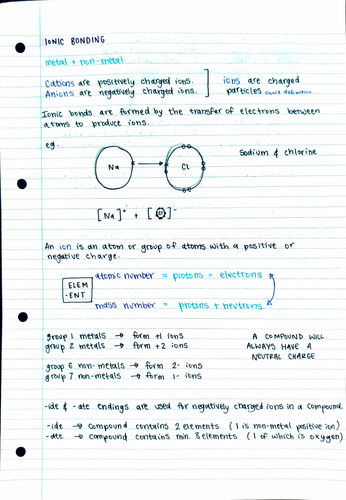 IONIC BONDING
metal + non-metal
Cations are positively charged ions.
Anions are negatively charged ions.
ions are charged
particles
Ionic bonds are formed by the transfer of electrons between
atoms to produce ions.
eg.
Na
Cl
Sodium & chlorine
[Na]⁺ + [Cl]⁻
An ion is an atom or group of atoms with a positive or
negative charge.
ELEM
-ENT
atomic number = protons = electrons
mass number = protons + neutrons
group 1 metals → form +1 ions
group 2 metals → form +2 ions
group 6 non-metals → form 2- ions
group 7 non-metals → form 1- ions
A COMPOUND WILL
ALWAYS HAVE A
NEUTRAL CHARGE
-ide & -ate endings are used for negatively charged ions in a compound.
-ide → compound contains 2 elements (1 is non-metal positive ion)
-ate → compound contains min. 3 elements (1 of which is oxygen)